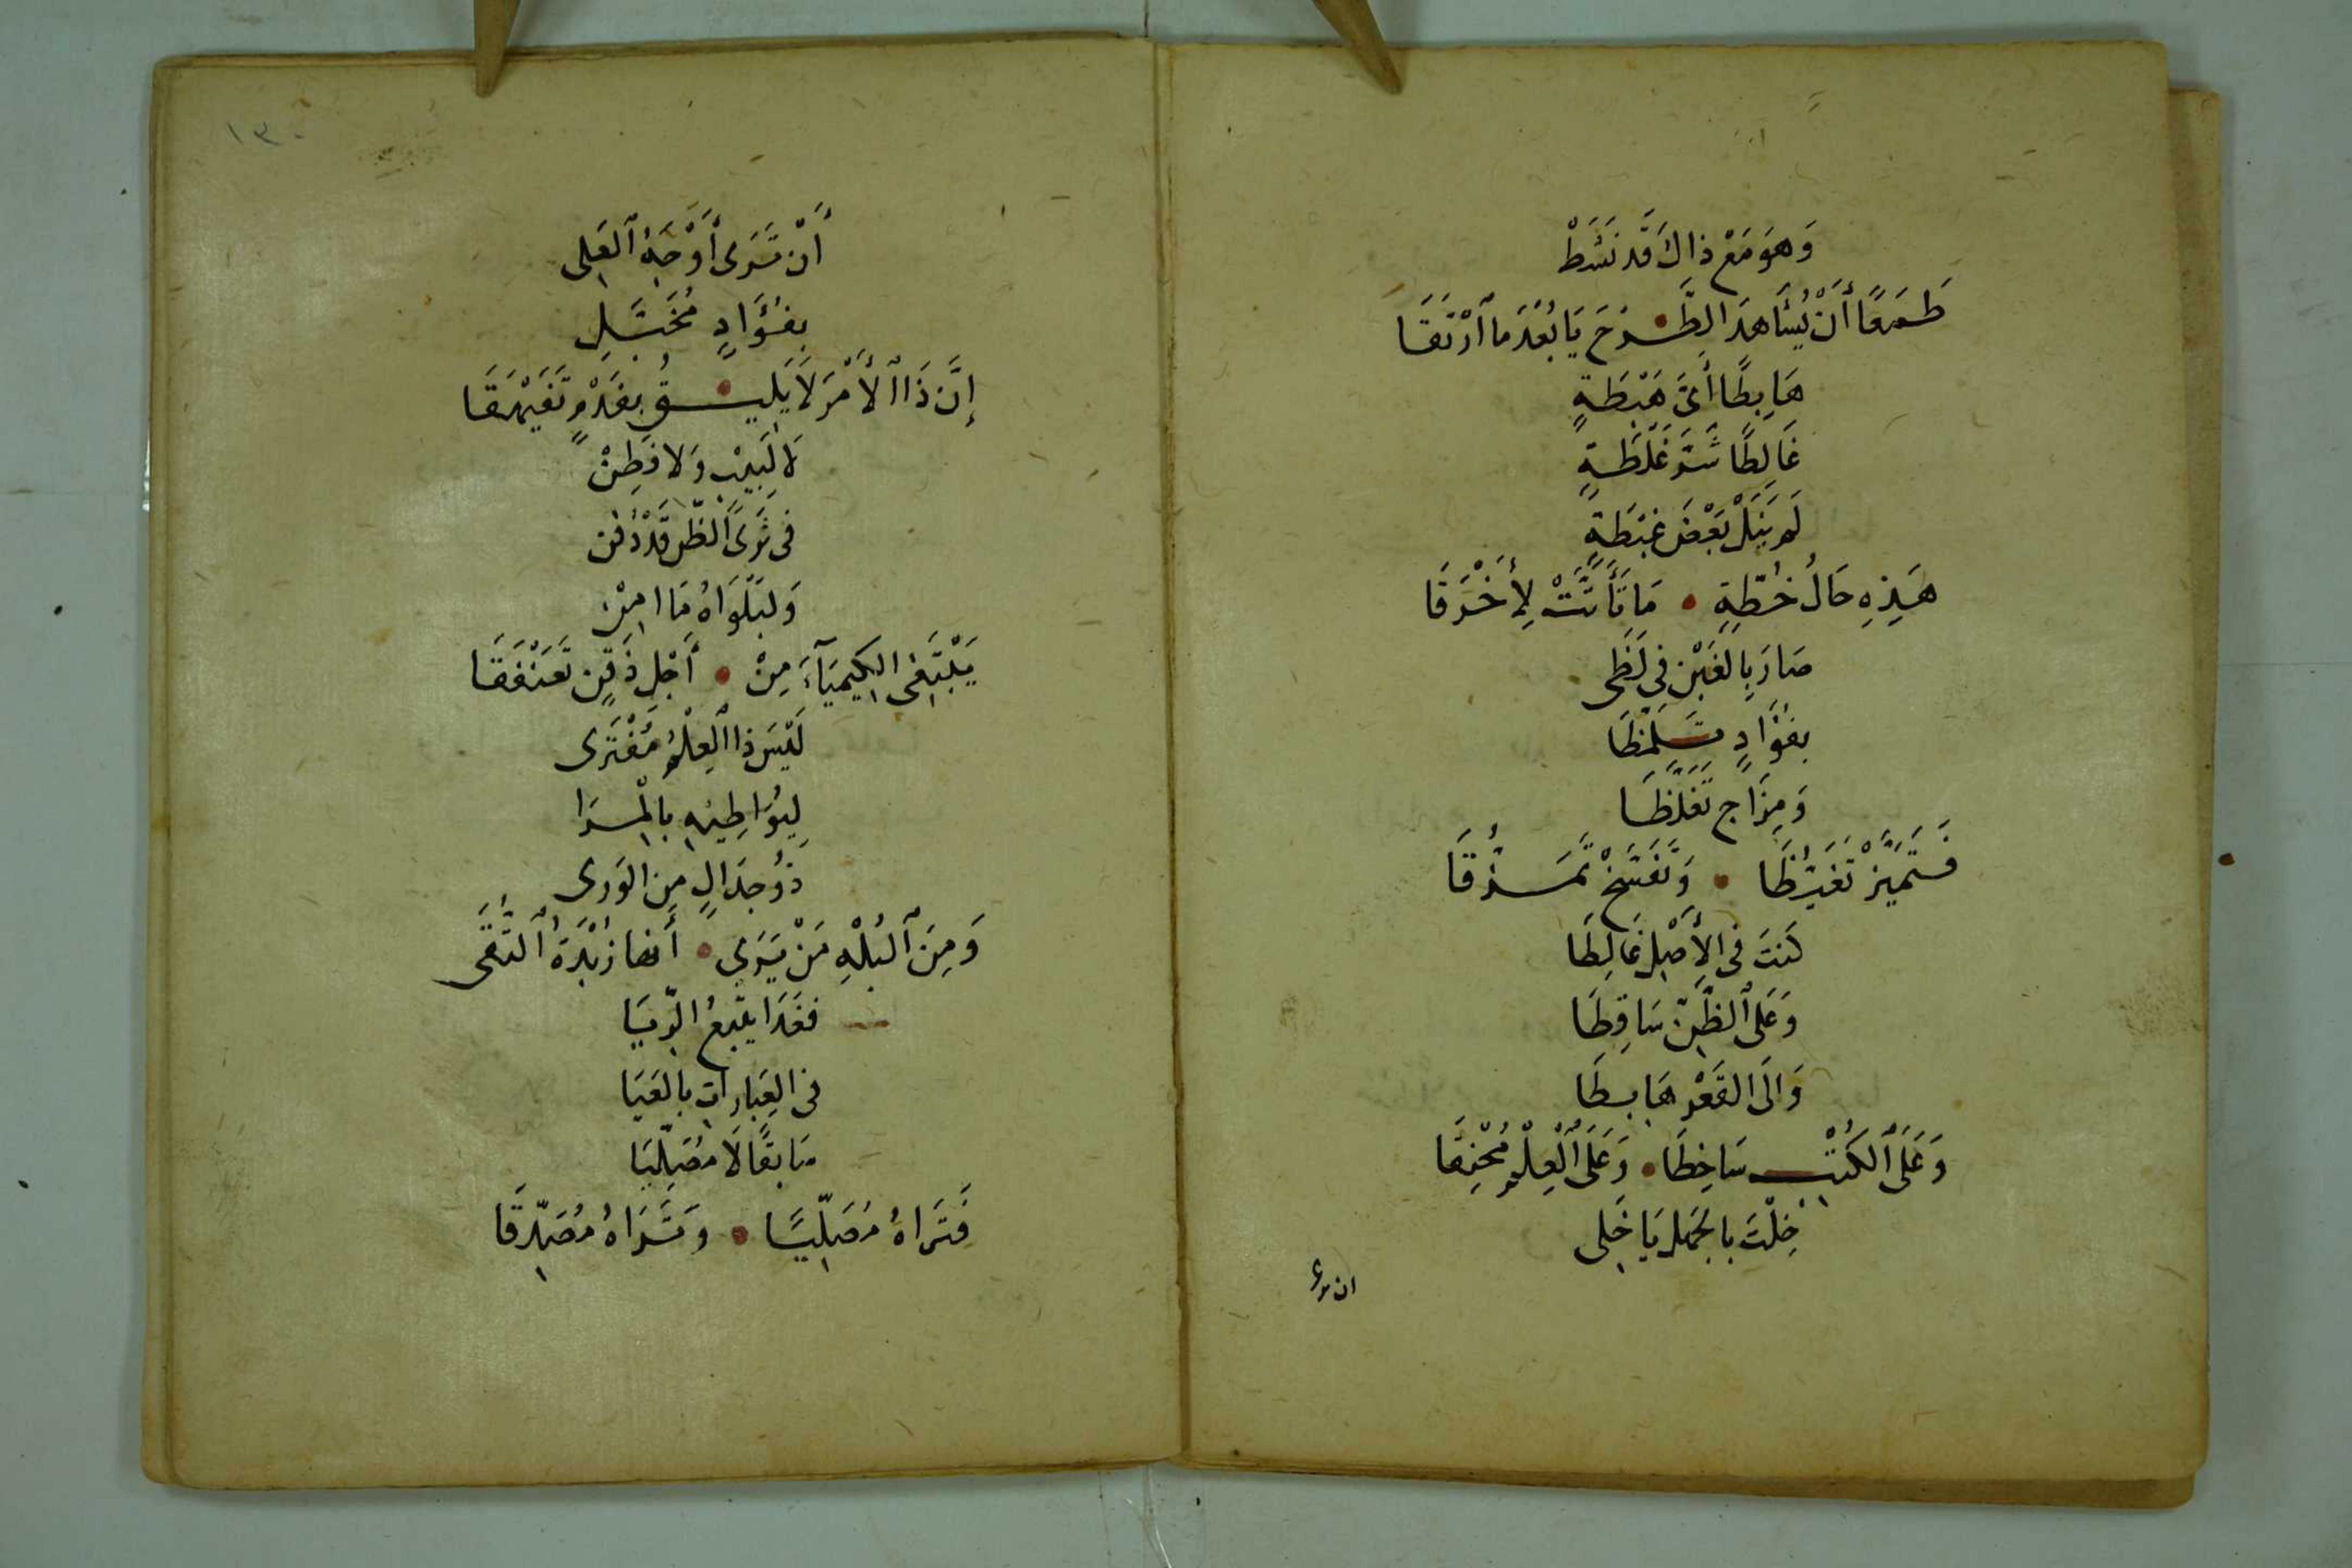 وَهوَ مَعْ ذاكَ قَد نَشَطْ
طَمَعًا أَنْ يُشَاهدَ الطَّرْحَ يَا بُعْدَ ما ٱرْتَقَا
هَابِطًا أَيَّ هَبْطَةٍ
غَالِطًا شَرَّ غَلْطَةٍ
لَم يَنَلْ بَعْضَ غِبْطَةٍ
هَذِهِ حَالُ خُطَّةٍ • مَا تَأَتَّتْ لِأَخْرَقَا
صَارَ بِالغَبْنِ فِي لَظَى
بِفُؤَادٍ
وَمِزَاجٍ تَغَلَّظَا
فَتَمَيَّزْ تَغَيُّظَا • وَتَفَسَّخْ تَمَزُّقَا
كنتَ فى الأَصْلِ غَالِطَا
وَعَلى ٱلظَّنِّ سَاقِطَا
وَالَى القَعْرِ هَابِطَا
وَعَلَى ٱلكُتْبِ سَاخِطَا • وَعَلَى ٱلْعِلْمِ مُحْنِقَا
خِلْتَ بالجَهلِ يَا خَلِى
ان ترى
١٣٠
أَنْ تَرَى أَوْجَهُ ٱلعَلِى
بِفُؤَادٍ مُخَبَّلِ
إِنَّ ذَا ٱلأَمْرَ لَا يَلِيقُ بِفَدْمٍ تَفَيْهَقَا
لا لَبِيبٍ وَلا فَطِنْ
فى ثَرَى ٱلظّنِ قَدْ دُفن
وَلِبَلْوَاهُ مَا امِنْ
يَبْتَغِى الكِيمِيَآءَ مِنْ • أَجْلِ ذَقْنٍ تَعَنْفَقَا
لَيْسَ ذا ٱلعِلْمُ مُفْتَرى
لِيُوَاطِيهِ بِالْمِرَا
ذوُ جِدَالٍ مِن الوَرى
وَمِنَ ٱلبُلْهِ مَنْ يَرَى • أَنها زُبْدَةُ ٱلتُّقَى
فَغَدَا يَتْبَعُ الرِّيَا
فى العِبَاراتِ بالعَيَا
سَابِقًا لَا مُصَلِّيَا
فَتَرَاهُ مُصَلِّيًا • وَتَرَاهُ مُصَدِّقَا